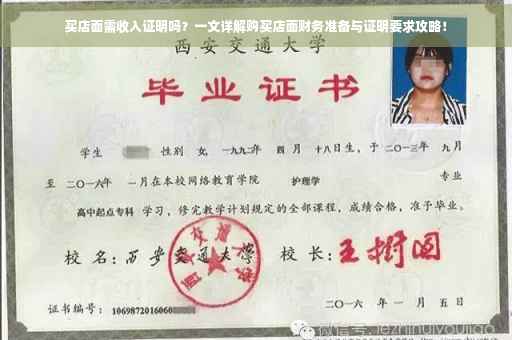 买店面需收入证明吗？一文详解购买店面财务准备与证明要求攻略！
西安交通大学
毕业证书
学生 性别 女，一九九二年 四月 十八日生，于二〇一三年 九月
至 二〇一六年 一月在本校网络教育学院 护理学 专业
高中起点专科 学习，修完教学计划规定的全部课程，成绩合格，准予毕业。
校名：西安交通大学 校长：王树国
西安交通大学
证书编号：1069872016060
二〇一六年 一月 五日
微信号: jezhihuiyoujiao